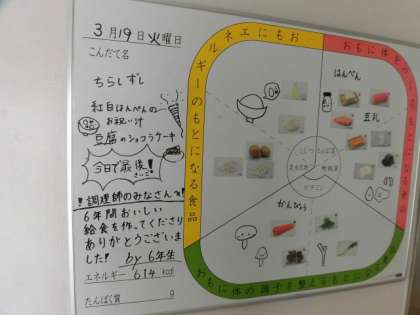 3月19日火曜日
こんだて名
ちらしずし
紅白はんぺんの
お祝い汁
豆腐のショコラケーキ
今日で最後!
調理師のみなさんへ!
6年間おいしい
給食を作ってくださり
ありがとうございま
した! by 6年生
エネルギー 614 kcal
たんぱく質 g
おもにエネルギーのもとになる食品
おもに体を
はんぺん
豆乳
ししつ
たんぱく質
炭水化物
無機質
ビタミン
かんぴょう
おもに体の調子を整えるもとになる食品